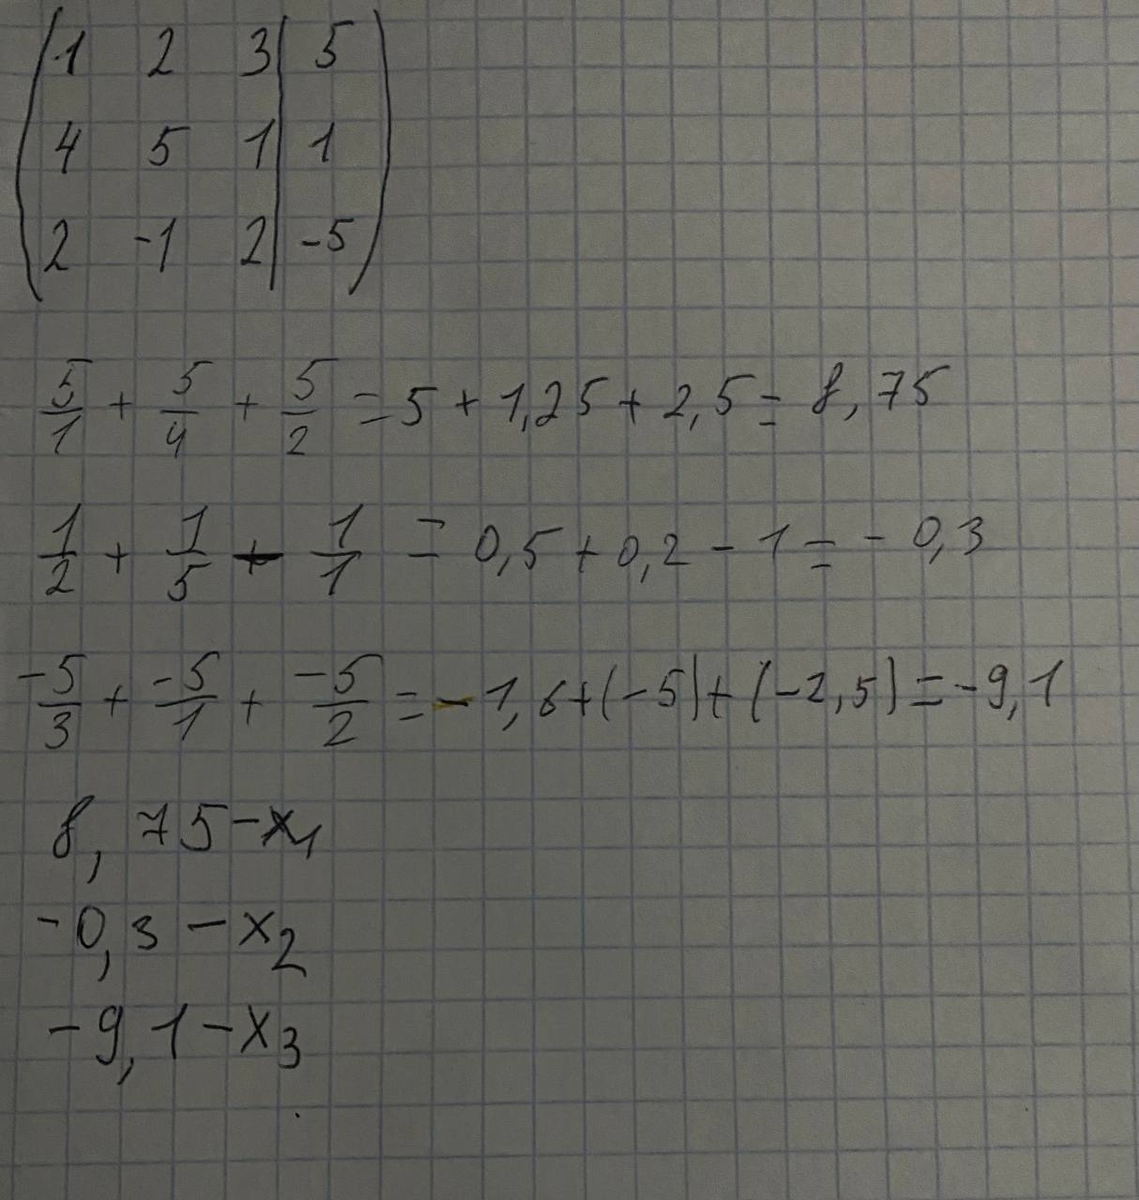 1 2 3 | 5
4 5 1 | 1
2 -1 2 | -5
5/1 + 5/4 + 5/2 = 5 + 1,25 + 2,5 = 8,75
1/2 + 1/5 - 1/1 = 0,5 + 0,2 - 1 = - 0,3
-5/3 + -5/1 + -5/2 = - 1,6 + (-5) + (-2,5) = -9,1
8,75 - x₁
-0,3 - x₂
-9,1 - x₃